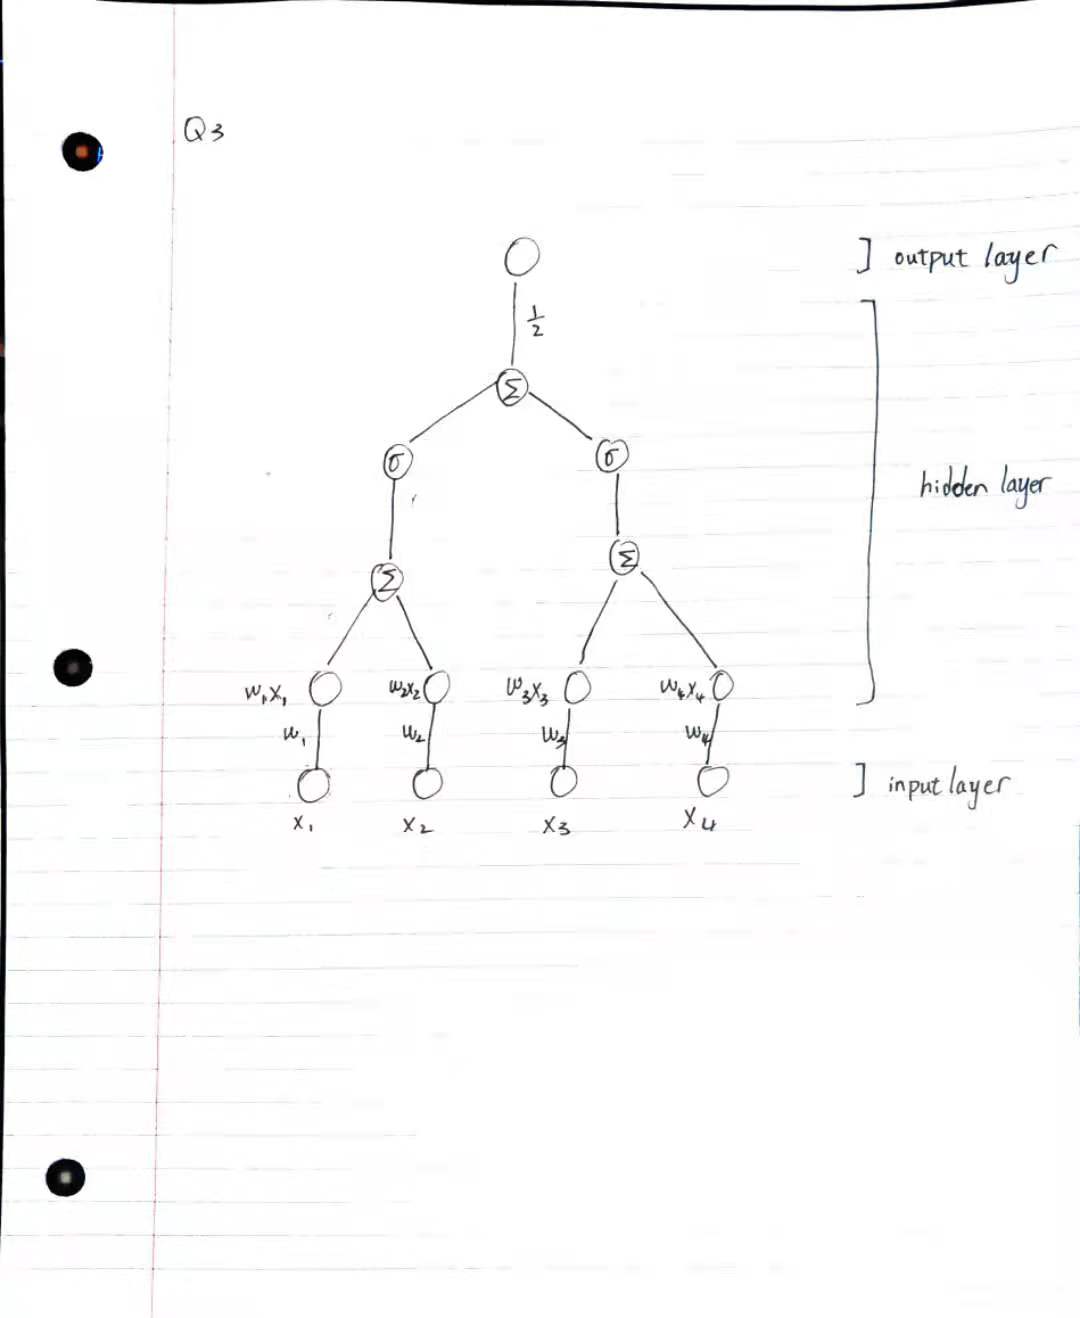 Q3
] output layer
1/2
Σ
σ σ
hidden layer
Σ
Σ
w₁x₁ w₂x₂ w₃x₃ w₄x₄
w₁ w₂ w₃ w₄
] input layer
x₁ x₂ x₃ x₄